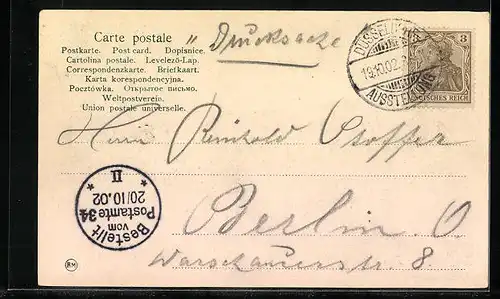 Carte postale
Postkarte. Post card. Dopisnice.
Cartolina postale. Levelező-Lap.
Correspondenzkarte. Briefkaart.
Karta korespondencyjna.
Pocztówka. Открытое письмо.
Weltpostverein.
Union postale universelle.
"Drucksache
DÜSSELDORF
19.10.02
AUSSTELLUNG
3
DEUTSCHES REICH
Herrn Reinhold
Berlin. O
Warschauerstr. 8
Bestellt
vom
Postamte 34
20/10.02
II
RM